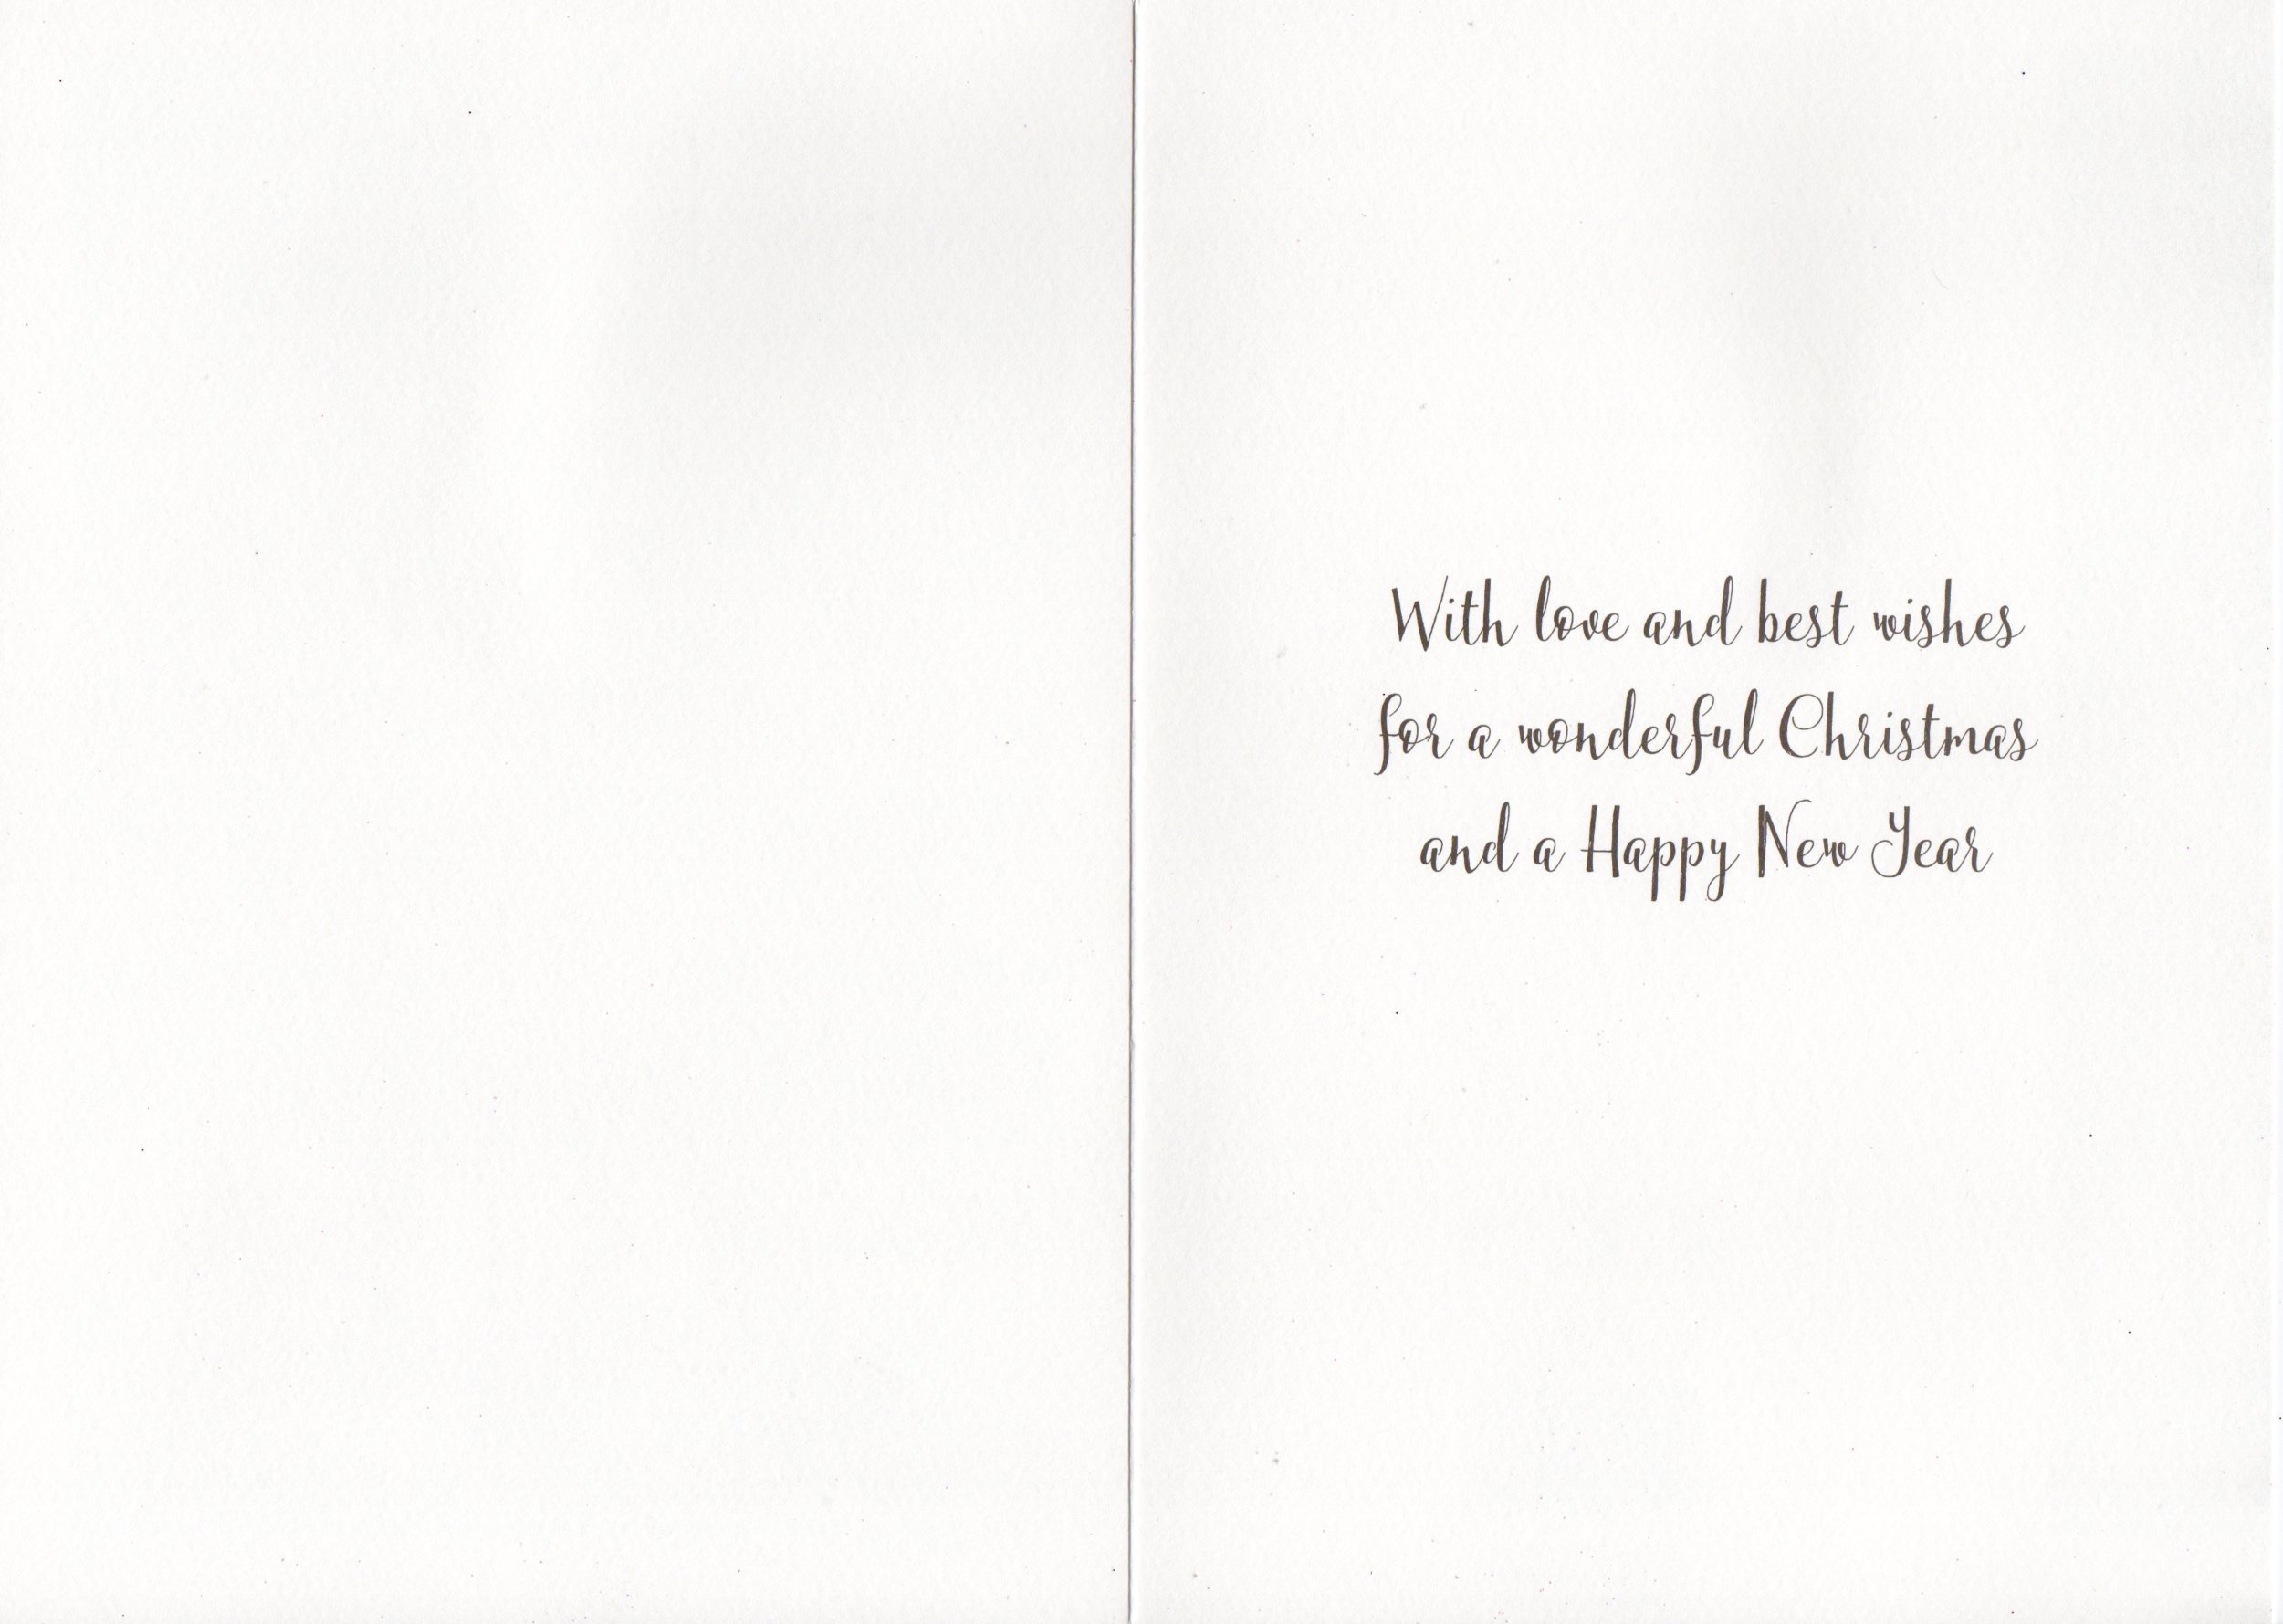 With love and best wishes
for a wonderful Christmas
and a Happy New Year